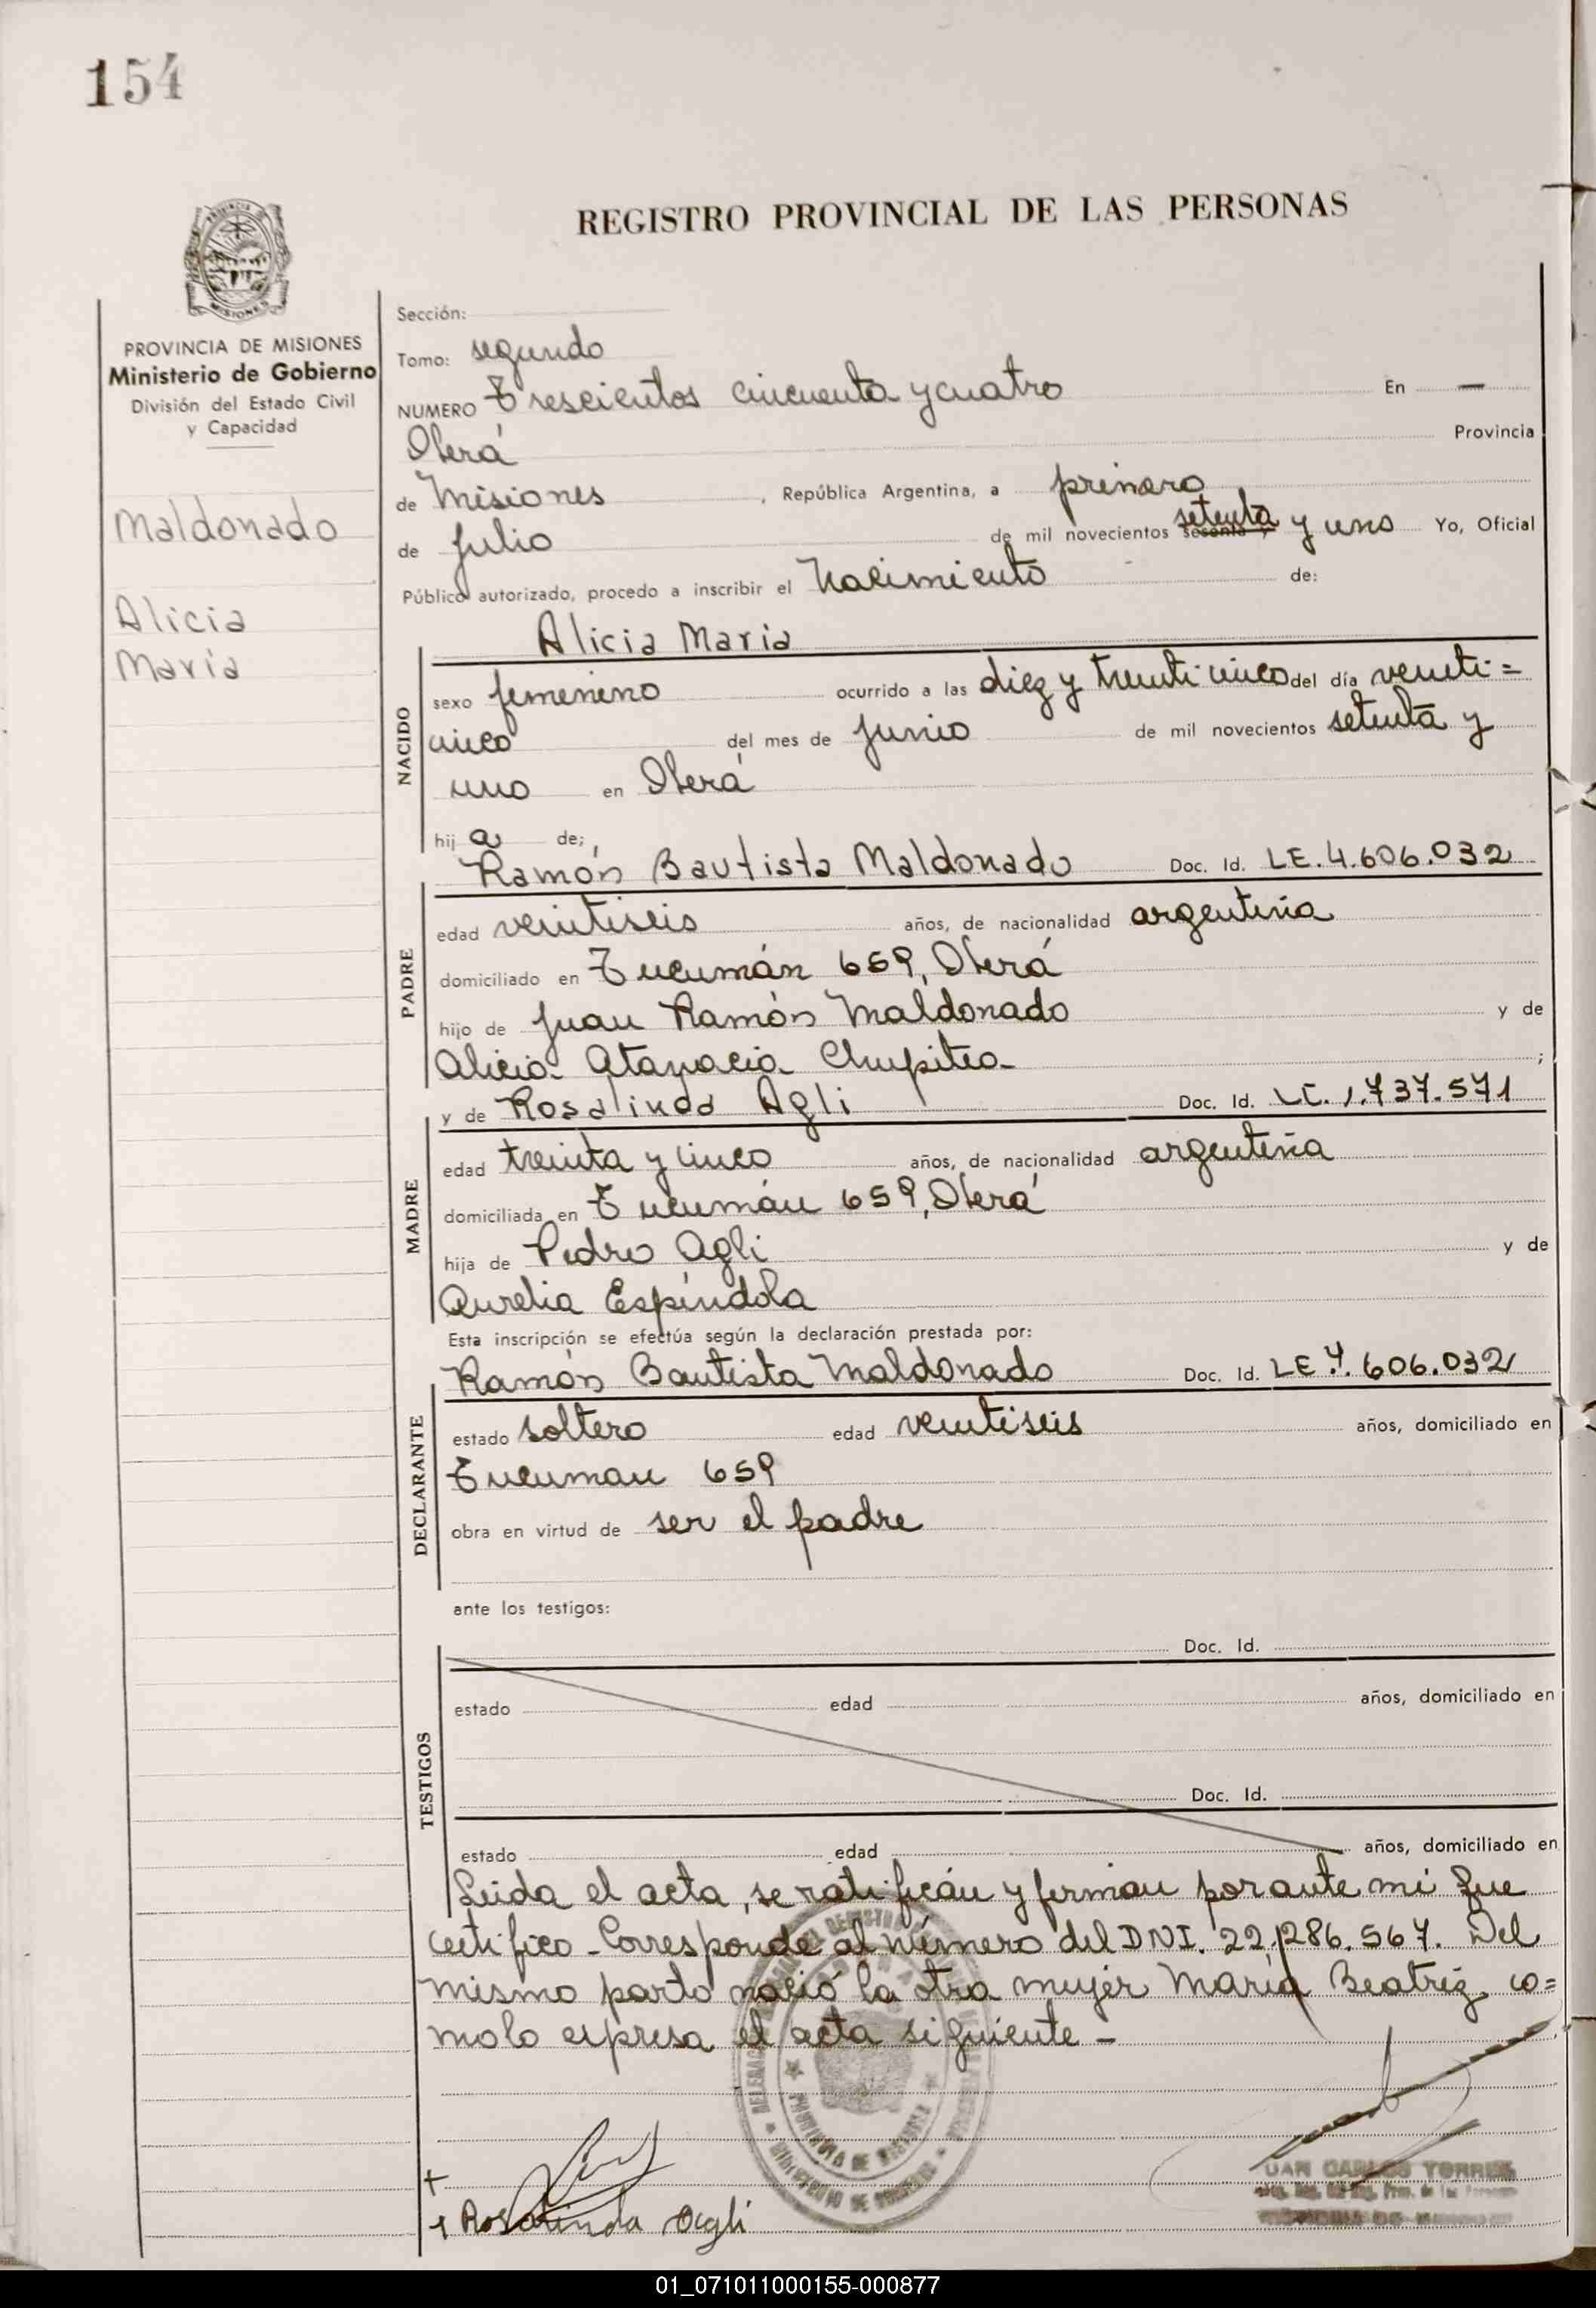 154
REGISTRO PROVINCIAL DE LAS PERSONAS
PROVINCIA DE MISIONES
Ministerio de Gobierno
División del Estado Civil
y Capacidad
Maldonado
Alicia
María
Sección:
Tomo: segundo
NUMERO Trescientos cincuenta y cuatro En —
Oberá Provincia
de Misiones, República Argentina, a primero
de Julio de mil novecientos sesenta y setenta y uno Yo, Oficial
Público autorizado, procedo a inscribir el Nacimiento de:
NACIDO
Alicia Maria
sexo femenino ocurrido a las diez y treinticinco del día veinti=
cinco del mes de Junio de mil novecientos setenta y
uno en Oberá
hija de;
PADRE
Ramón Bautista Maldonado Doc. Id. LE. 4.606.032
edad veintiseis años, de nacionalidad argentina
domiciliado en Tucumán 659, Oberá
hijo de Juan Ramón Maldonado y de
Alicia Atanacia Chupitea ;
MADRE
y de Rosalinda Agli Doc. Id. LC. 1.737.571
edad treinta y cinco años, de nacionalidad argentina
domiciliada en Tucumán 659, Oberá
hija de Pedro Agli y de
Aurelia Espíndola
Esta inscripción se efectúa según la declaración prestada por:
DECLARANTE
Ramón Bautista Maldonado Doc. Id. LE 4.606.032
estado soltero edad veintiseis años, domiciliado en
Tucuman 659
obra en virtud de ser el padre
ante los testigos:
TESTIGOS
Doc. Id.
estado edad años, domiciliado en
Doc. Id.
estado edad años, domiciliado en
Leida el acta, se ratificán y firman por ante mi que
certifico - Corresponde al número del DNI. 22.286.567. Del
mismo parto nació la otra mujer María Beatriz, co=
molo expresa el acta siguiente -
Rosalinda Agli
JUAN CARLOS TORRES
01_071011000155-000877